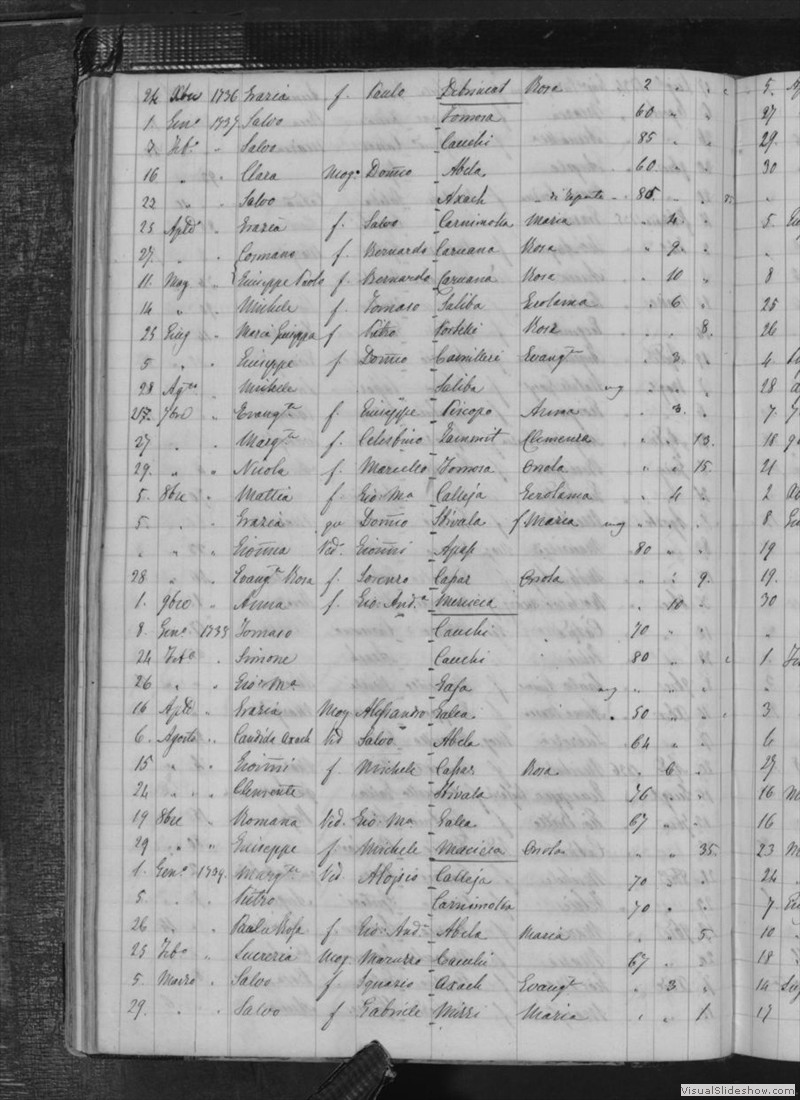 24 Xbre 1736 Grazia f. Paulo Debrincat Rosa 2 " "
1. Gen° 1737. Salvo Tomosa 60 "
7 Feb° " Salvo Cauchi 85 "
16 " " Clara Mog. Domco Abela 60 "
22 " " Salvo Axach 85 "
25 Aple " Grazia f. Salvo Carnimolla Maria " 4. "
27. " " Cosmano f. Bernardo Caruana Rosa " 9. "
11. Mag " Giuseppe Paolo f Bernardo Caruana Rosa " 10 "
14 " " Michele f. Tomaso Saliba Gerolama " 6 "
25 Giug " Maria Giuseppa f Pietro Rosa " " 8.
5 " " Giuseppe f Domco Camilleri Evangta " 3. "
28 Agto " Michele Saliba
27. 7bre " Evangta f. Giuseppe Piscopo Anna " 3. "
27 " " Margta f. Celestino Clemenza " " 13.
29. " " Nicola f. Marcello Tomosa Orsola " " 15.
5. 8bre " Mattia f Gio: Ma Calleja Gerolama " 4 "
5. " " Grazia Domco Stivala f Maria
" " " Gioanna Ved. Gioanni Apap 80 " "
28 " " Evangta Rosa f. Lorenzo Capar Orsola " " 9.
1. 9bre " Anna f. Gio: Anda Mercieca " 10 "
8. Gen° 1738 Tomaso Cauchi 70 "
24 Feb° " Simone Cauchi 80 " "
26 " " Gio: Ma
16 Aple " Grazia Mog Alessandro Galea " 50 " "
6. Agosto " Candida Axach Ved Salvo Abela 64 "
15 " " Gioanni f. Michele Capar Rosa " 6 "
24 " " Clemente Stivala 76 "
19 8bre " Romana Ved. Gio: Ma Galea 67 " "
29 " " Giuseppe f. Michele Macieca Orsola " " 35.
1. Gen° 1739. Margta Ved Aloisio Calleja 70 "
5. " " Pietro Carnimolla 70 "
26 " " Paula Rosa f Gio: And: Abela Maria " " 5.
25 Feb° " Lucrezia Mog Cauchi 67 "
5. Marzo " Salvo f. Ignazio Axach Evangta " 3 "
29. " " Salvo f Gabriele Mizzi Maria " " 1.
5.
27
29.
30
5.
8
25
26
4
28
7
18
21
2
8
19
19.
30
1.
2
3
6
27
16
16
23
24
7
10
18
14
17
VisualSlideshow.com